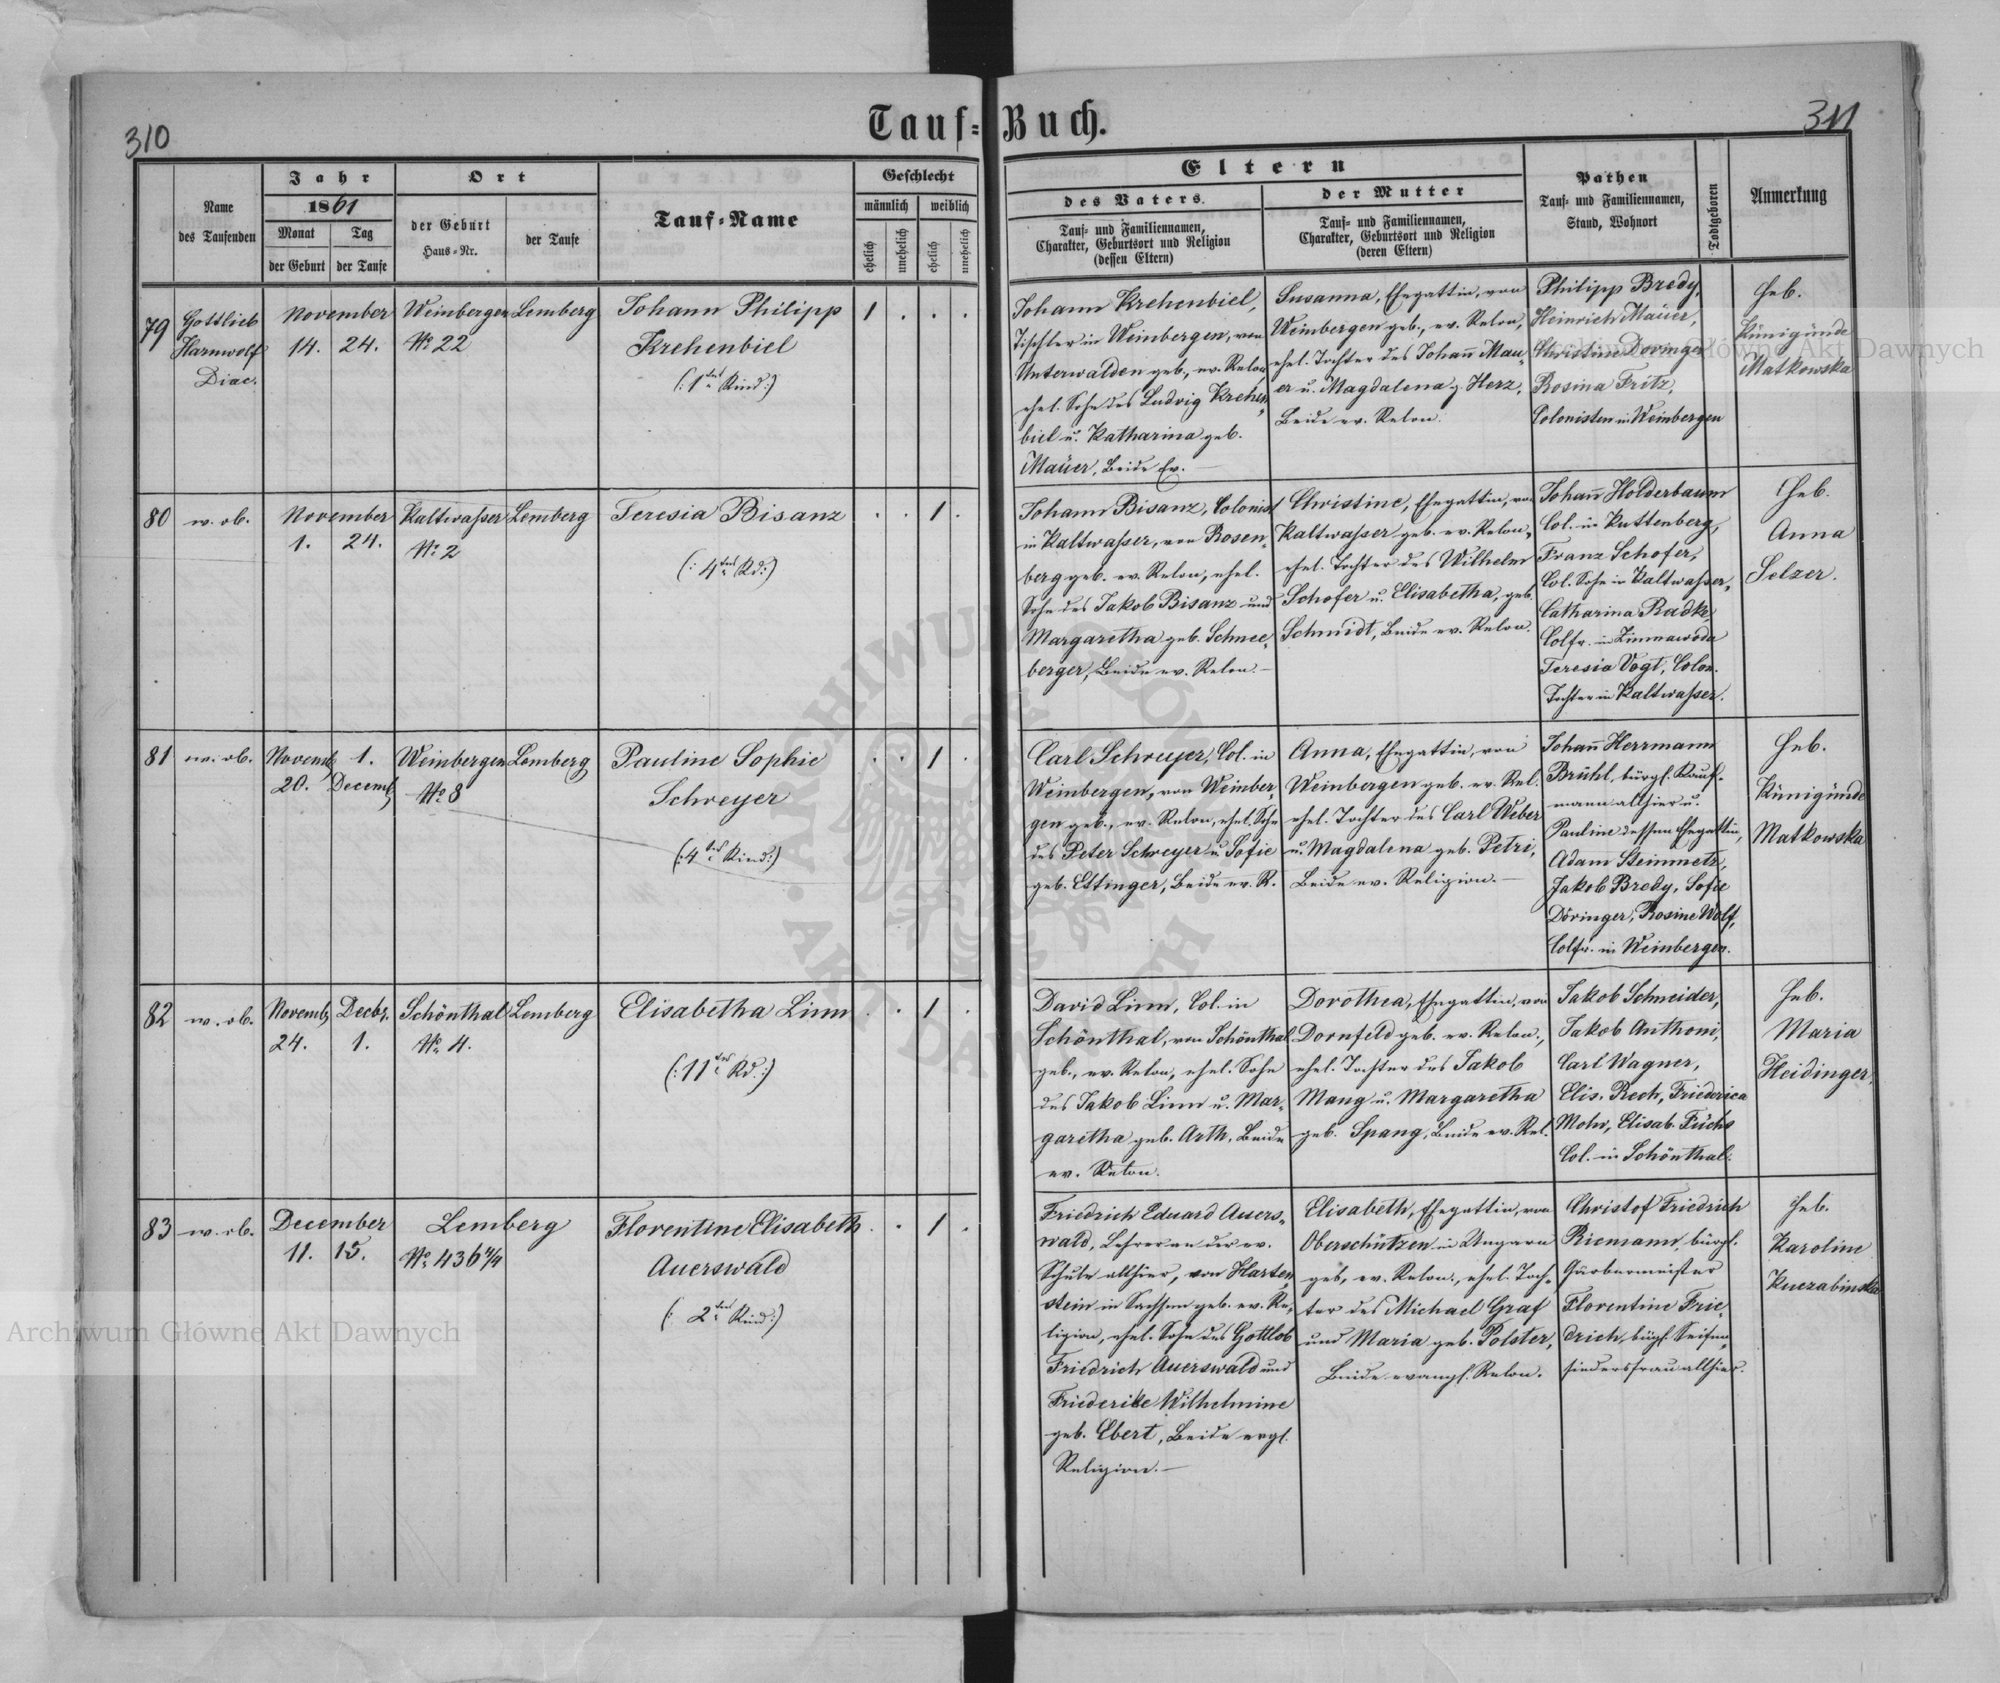 310
Tauf-Buch.
311
Name
des Taufenden
Jahr
1861
Monat
Tag
der Geburt
der Taufe
Ort
der Geburt
Haus-Nr.
der Taufe
Tauf-Name
Geschlecht
männlich
weiblich
ehelich
unehelich
ehelich
unehelich
Eltern
des Vaters
Tauf- und Familiennamen,
Charakter, Geburtsort und Religion
(dessen Eltern)
der Mutter
Tauf- und Familiennamen,
Charakter, Geburtsort und Religion
(deren Eltern)
Pathen
Tauf- und Familiennamen,
Stand, Wohnort
Todtgeboren
Anmerkung
79
Gottlieb
Harnwolf
Diac.
November
14. 24.
Weinbergen
No 22
Lemberg
Johann Philipp
Krehenbiel
(: 1tes Kind :)
1 . . .
Johann Krehenbiel,
Tischler in Weinbergen, von
Unterwalden geb., ev. Relon
ehel. Sohn des Ludwig Krehen-
biel u. Katharina geb.
Mauer, Beide Ev.
Susanna, Ehegattin, von
Weinbergen geb., ev. Relon,
ehel. Tochter des Johann Mau-
er u. Magdalena g. Herz,
Beide ev. Relon.
Philipp Bredy,
Heinrich Mauer,
Christine Doringer
Rosina Fritz,
Colonisten in Weinbergen
Heb.
Künigünde
Matkowska
80
w. ob.
November
1. 24.
Kaltwasser
No 2
Lemberg
Teresia Bisanz
(: 4tes Kd :)
. . 1 .
Johann Bisanz, Colonist
in Kaltwasser, von Rosen-
berg geb. ev. Relon, ehel.
Sohn des Jakob Bisanz und
Margaretha geb. Schnee-
berger, Beide ev. Relon.
Christine, Ehegattin, von
Kaltwasser geb. ev. Relon,
ehel. Tochter des Wilhelm
Schofer u. Elisabetha, geb.
Schmidt, Beide ev. Relon.
Johann Holderbaum
Col. in Kuttenberg,
Franz Schofer,
Col. Sohn in Kaltwasser,
Catharina Radke,
Colfr. in Zimnawoda
Teresia Vogt, Colon.
Tochter in Kaltwasser.
Heb.
Anna
Selzer.
81
w. ob.
Novemb. 1.
20. Decemb.
Weinbergen
No 8
Lemberg
Pauline Sophie
Schreyer
(: 4tes Kind :)
. . 1 .
Carl Schreyer, Col. in
Weinbergen, von Weinber-
gen geb., ev. Relon, ehel. Sohn
des Peter Schreyer u. Sofie
geb. Ettinger, Beide ev. R.
Anna, Ehegattin, von
Weinbergen geb. ev. Rel.
ehel. Tochter des Carl Weber
u. Magdalena geb. Petri,
Beide ev. Religion.
Johann Herrmann
Brühl, bürgl. Kauf-
mann allhier u.
Pauline dessen Ehegattin,
Adam Steinmetz,
Jakob Bredy, Sofie
Döringer, Rosine Wolf,
Colfr. in Weinbergen.
Heb.
Künigünde
Matkowska
82
w. ob.
Novemb. Decbr.
24. 1.
Schönthal
No 4.
Lemberg
Elisabetha Linn
(: 11tes Kd. :)
. . 1 .
David Linn, Col. in
Schönthal, von Schönthal
geb., ev. Relon, ehel. Sohn
des Jakob Linn u. Mar-
garetha geb. Arth. Beide
ev. Relon.
Dorothea, Ehegattin, von
Dornfeld geb. ev. Relon.,
ehel. Tochter des Jakob
Mang u. Margaretha
geb. Spang, Beide ev. Rel.
Jakob Schneider,
Jakob Anthoni,
Carl Wagner,
Elis. Rech, Friederica
Mohr, Elisab. Füchs
Col. in Schönthal.
Heb.
Maria
Heidinger.
83
w. ob.
December
11. 15.
Lemberg
No 436 4/4
Florentine Elisabeth
Auerswald
(: 2tes Kind :)
. . 1 .
Friedrich Eduard Auers-
wald, Lehrer an der ev.
Schule allhier, von Harten-
stein in Sachsen geb. ev. Re-
ligion, ehel. Sohn des Gottlob
Friedrich Auerswald und
Friederike Wilhelmine
geb. Ebert, Beide evgl.
Religion.
Elisabeth, Ehegattin, von
Oberschützen in Ungarn
geb, ev. Relon., ehel. Toch-
ter des Michael Graf
und Maria geb. Polster,
Beide evangl. Relon.
Christof Friedrich
Riemann, bürgl.
Gärbermeister
Florentine Frie-
drich, bügl. Seifen-
siedersfrau allhier.
Heb.
Karoline
Kuczabinska
Archiwum Główne Akt Dawnych
Archiwum Główne Akt Dawnych
ARCHIWUM GŁÓWNE AKT DAWNYCH